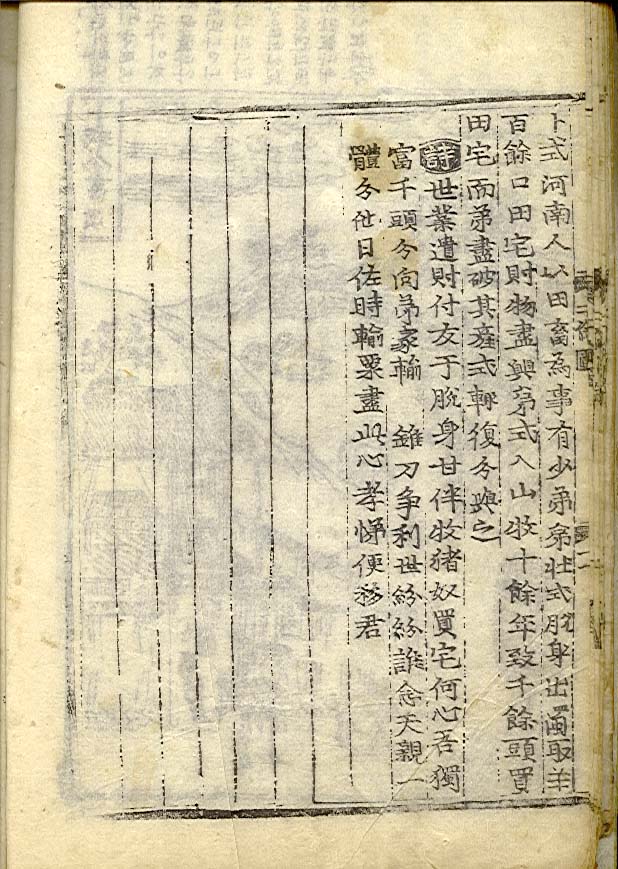 卜式河南人以田畜為事有少弟弟壯式脫身出獨取羊
百餘口田宅財物盡與弟式入山牧十餘年致千餘頭買
田宅而弟盡破其產式輒復分與之
詩世業遺財付友于脫身甘伴牧猪奴買宅何心吾獨
富千頭分向弟家輸 錐刀争利世紛紛誰念天親一
體分他日佐時輸粟盡此心孝悌便移君
二 圖
二